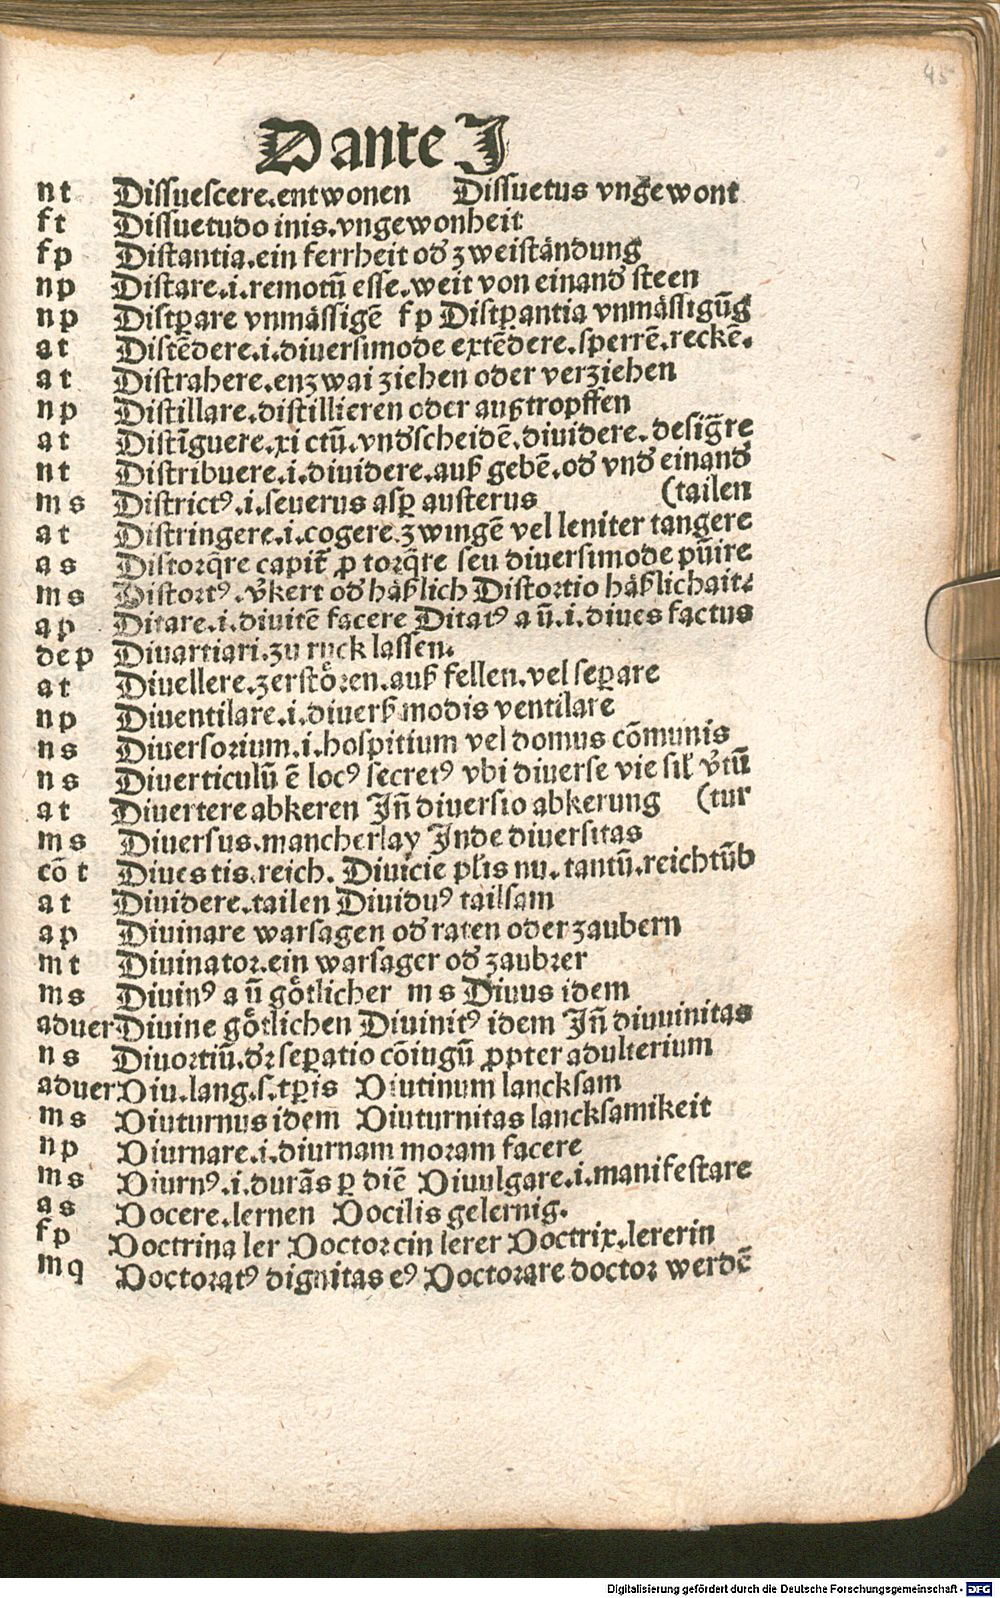 45
Dante I
nt Dissuescere.entwonen Dissuetus vngewont
ft Dissuetudo inis.vngewonheit
fp Distantia.ein ferrheit od̕ zweiständung
np Distare.i.remotū esse.weit von einand̕ steen
np Distꝑare vnmässigē fp Distꝑantia vnmässigūg
at Distēdere.i.diuersimode extēdere.sperrē.reckē.
at Distrahere.enzwai ziehen oder verziehen
np Distillare.distillieren oder außtropffen
at Distīguere.xi ctū.vnd̕scheidē.diuidere.desig̃re
nt Distribuere.i.diuidere.auß gebē.od̕ vnd̕ einand̕
ms Districtꝰ.i.seuerus asꝑ austerus (tailen
at Distringere.i.cogere.zwingē vel leniter tangere
as Distorq̄re capit̄ ꝓ torq̄re seu diuersimode pūire
ms Distortꝰ.v̕kert od̕ häßlich Distortio häßlichait.
ap Ditare.i.diuitē facere Ditatꝰ a ū.i.diues factus
dep Diuartiari.zu ruck lassen.
at Diuellere.zerstören.auß fellen.vel seꝑare
np Diuentilare.i.diuerß modis ventilare
ns Diuersorium.i.hospitium vel domus cōmunis
ns Diuerticulū ē locꝰ secretꝰ vbi diuerse vie sil̕ v̕tū
at Diuertere abkeren Iñ diuersio abkerung (tur
ms Diuersus.mancherlay Inde diuersitas
cō t Diues tis.reich. Diuicie pl̕is nu.tantū.reichtūb
at Diuidere.tailen Diuiduꝰ tailsam
ap Diuinare warsagen od̕ raten oder zaubern
mt Diuinator.ein warsager od̕ zaubrer
ms Diuinꝰ a ū götlicher ms Diuus idem
aduer Diuine götlichen Diuinitꝰ idem Iñ diuuinitas
ns Diuortiū.d̕r seꝑatio cōiugū ꝓpter adulterium
aduer Diu.lang.s.tꝑis Diutinum lancksam
ms Diuturnus idem Diuturnitas lancksamikeit
np Diurnare.i.diurnam moram facere
ms Diurnꝰ.i.durās ꝑ diē Diuulgare.i.manifestare
as Docere.lernen Docilis gelernig.
fp Doctrina ler Doctor ein lerer Doctrix.lererin
mq Doctoratꝰ dignitas eꝰ Doctorare doctor werdē
Digitalisierung gefördert durch die Deutsche Forschungsgemeinschaft - DFG